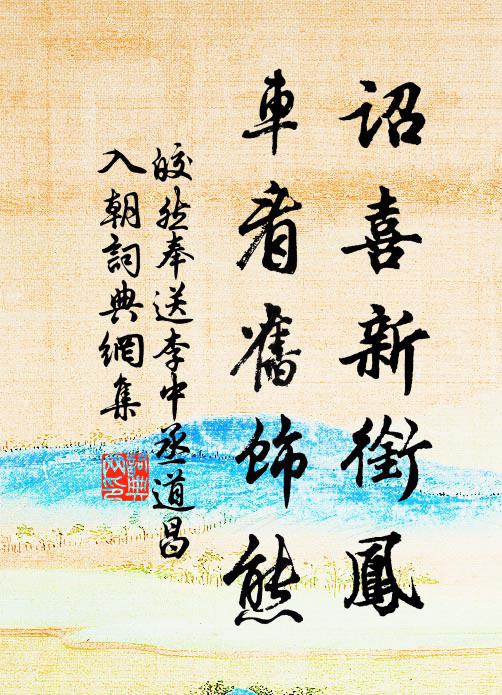 詔喜新銜鳳
車看舊飾熊
皎然奉送李中丞道昌
入朝詞典網集